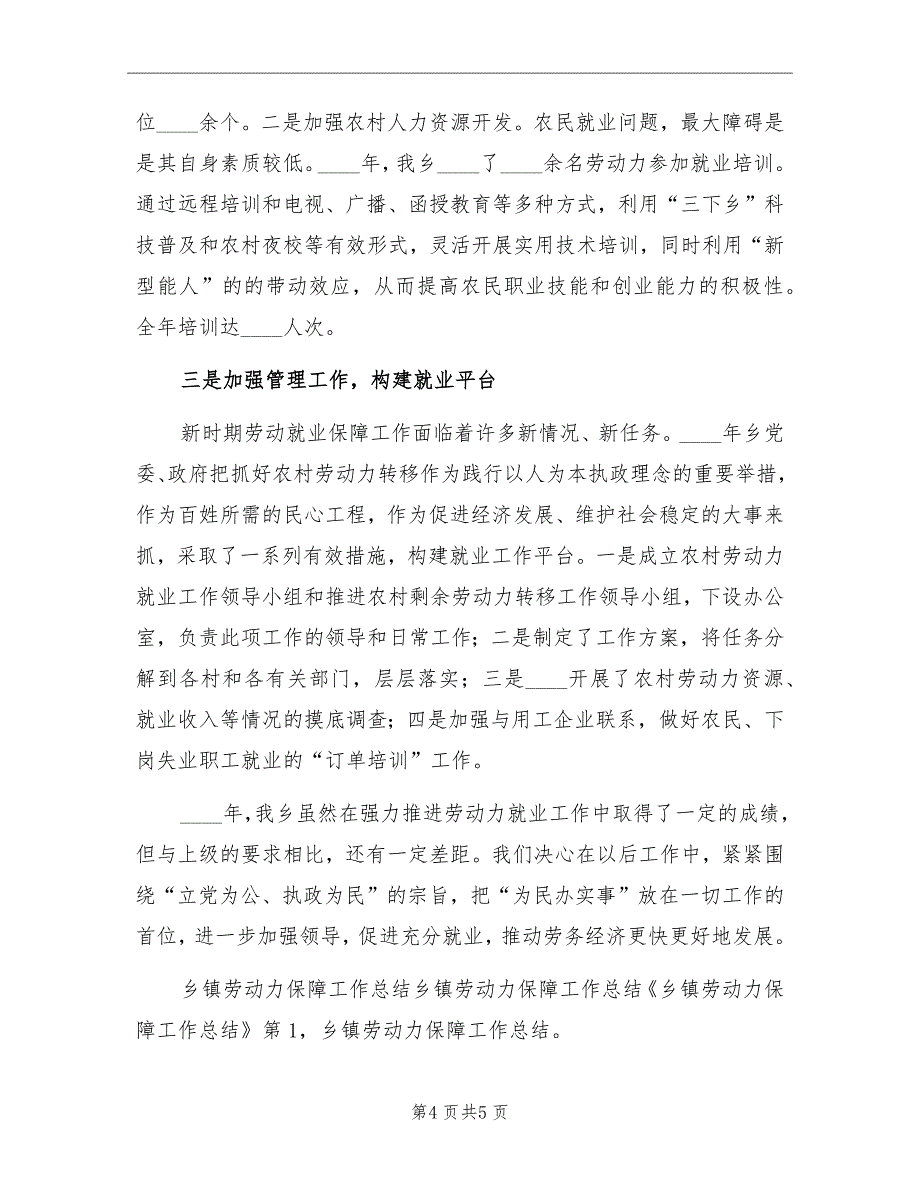 位____余个。二是加强农村人力资源开发。农民就业问题，最大障碍是
是其自身素质较低。____年，我乡____了____余名劳动力参加就业培训。
通过远程培训和电视、广播、函授教育等多种方式，利用“三下乡”科
技普及和农村夜校等有效形式，灵活开展实用技术培训，同时利用“新
型能人”的的带动效应，从而提高农民职业技能和创业能力的积极性。
全年培训达____人次。
三是加强管理工作，构建就业平台
新时期劳动就业保障工作面临着许多新情况、新任务。____年乡党
委、政府把抓好农村劳动力转移作为践行以人为本执政理念的重要举措，
作为百姓所需的民心工程，作为促进经济发展、维护社会稳定的大事来
抓，采取了一系列有效措施，构建就业工作平台。一是成立农村劳动力
就业工作领导小组和推进农村剩余劳动力转移工作领导小组，下设办公
室，负责此项工作的领导和日常工作；二是制定了工作方案，将任务分
解到各村和各有关部门，层层落实；三是____开展了农村劳动力资源、
就业收入等情况的摸底调查；四是加强与用工企业联系，做好农民、下
岗失业职工就业的“订单培训”工作。
____年，我乡虽然在强力推进劳动力就业工作中取得了一定的成绩，
但与上级的要求相比，还有一定差距。我们决心在以后工作中，紧紧围
绕“立党为公、执政为民”的宗旨，把“为民办实事”放在一切工作的
首位，进一步加强领导，促进充分就业，推动劳务经济更快更好地发展。
乡镇劳动力保障工作总结乡镇劳动力保障工作总结《乡镇劳动力保
障工作总结》第 1，乡镇劳动力保障工作总结。
第 4 页 共 5 页